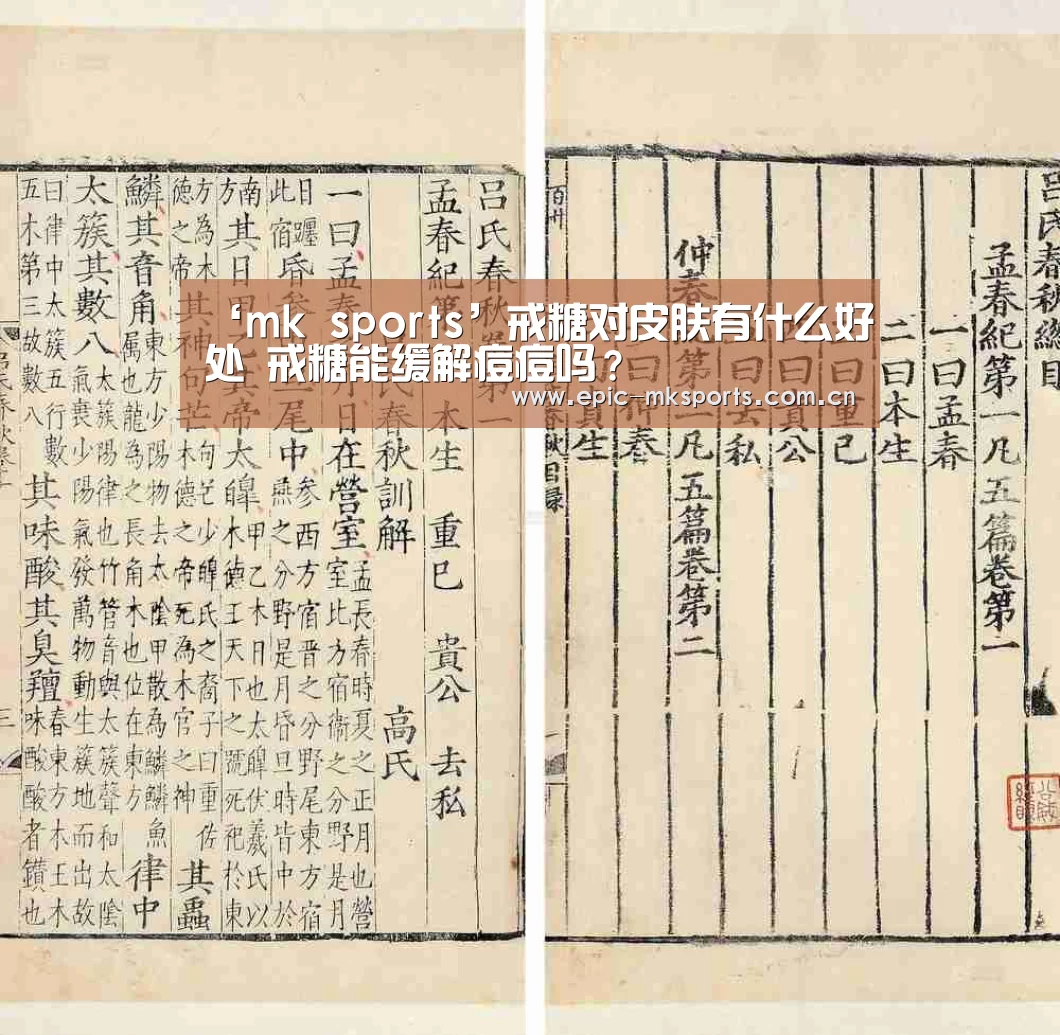 ‘mk sports’戒糖对皮肤有什么好
处 戒糖能缓解痘痘吗？
www.epic-mksports.com.cn
呂氏春秋總目
孟春紀第一凡五篇卷第一
一曰孟春
二曰本生
曰重已
曰貴公
曰去私
仲春 第二凡五篇卷第二
曰仲春
貴生
呂氏春秋 第一
孟春紀第 本生 重巳 貴公 去私
氏春秋訓解 高氏
一曰孟春 月日在營室 孟長春時夏之正月也營室比方宿衛之分野是月
日躔此宿昏參 尾中 參西方宿晉之分野尾東方宿燕之分野是月昏旦時皆中於
南方其日甲乙其帝太皞 甲乙木日也太皞伏羲氏以木德王天下之號死祀於東
方為木德之帝其神句芒 句芒少皞氏之裔子曰重佐木德之帝死為木官之神 其蟲
鱗其音角 東方少陽物去太陰甲散為鱗鱗魚屬也龍為之長角木也位在東方 律中
太簇其數八 太簇陽律也竹管音與太簇聲和太陰氣衰少陽氣發萬物動生簇地而出故
曰律中太簇五行數五木第三故數八 其味酸其臭羶 春東方木王木味酸酸者鑽也